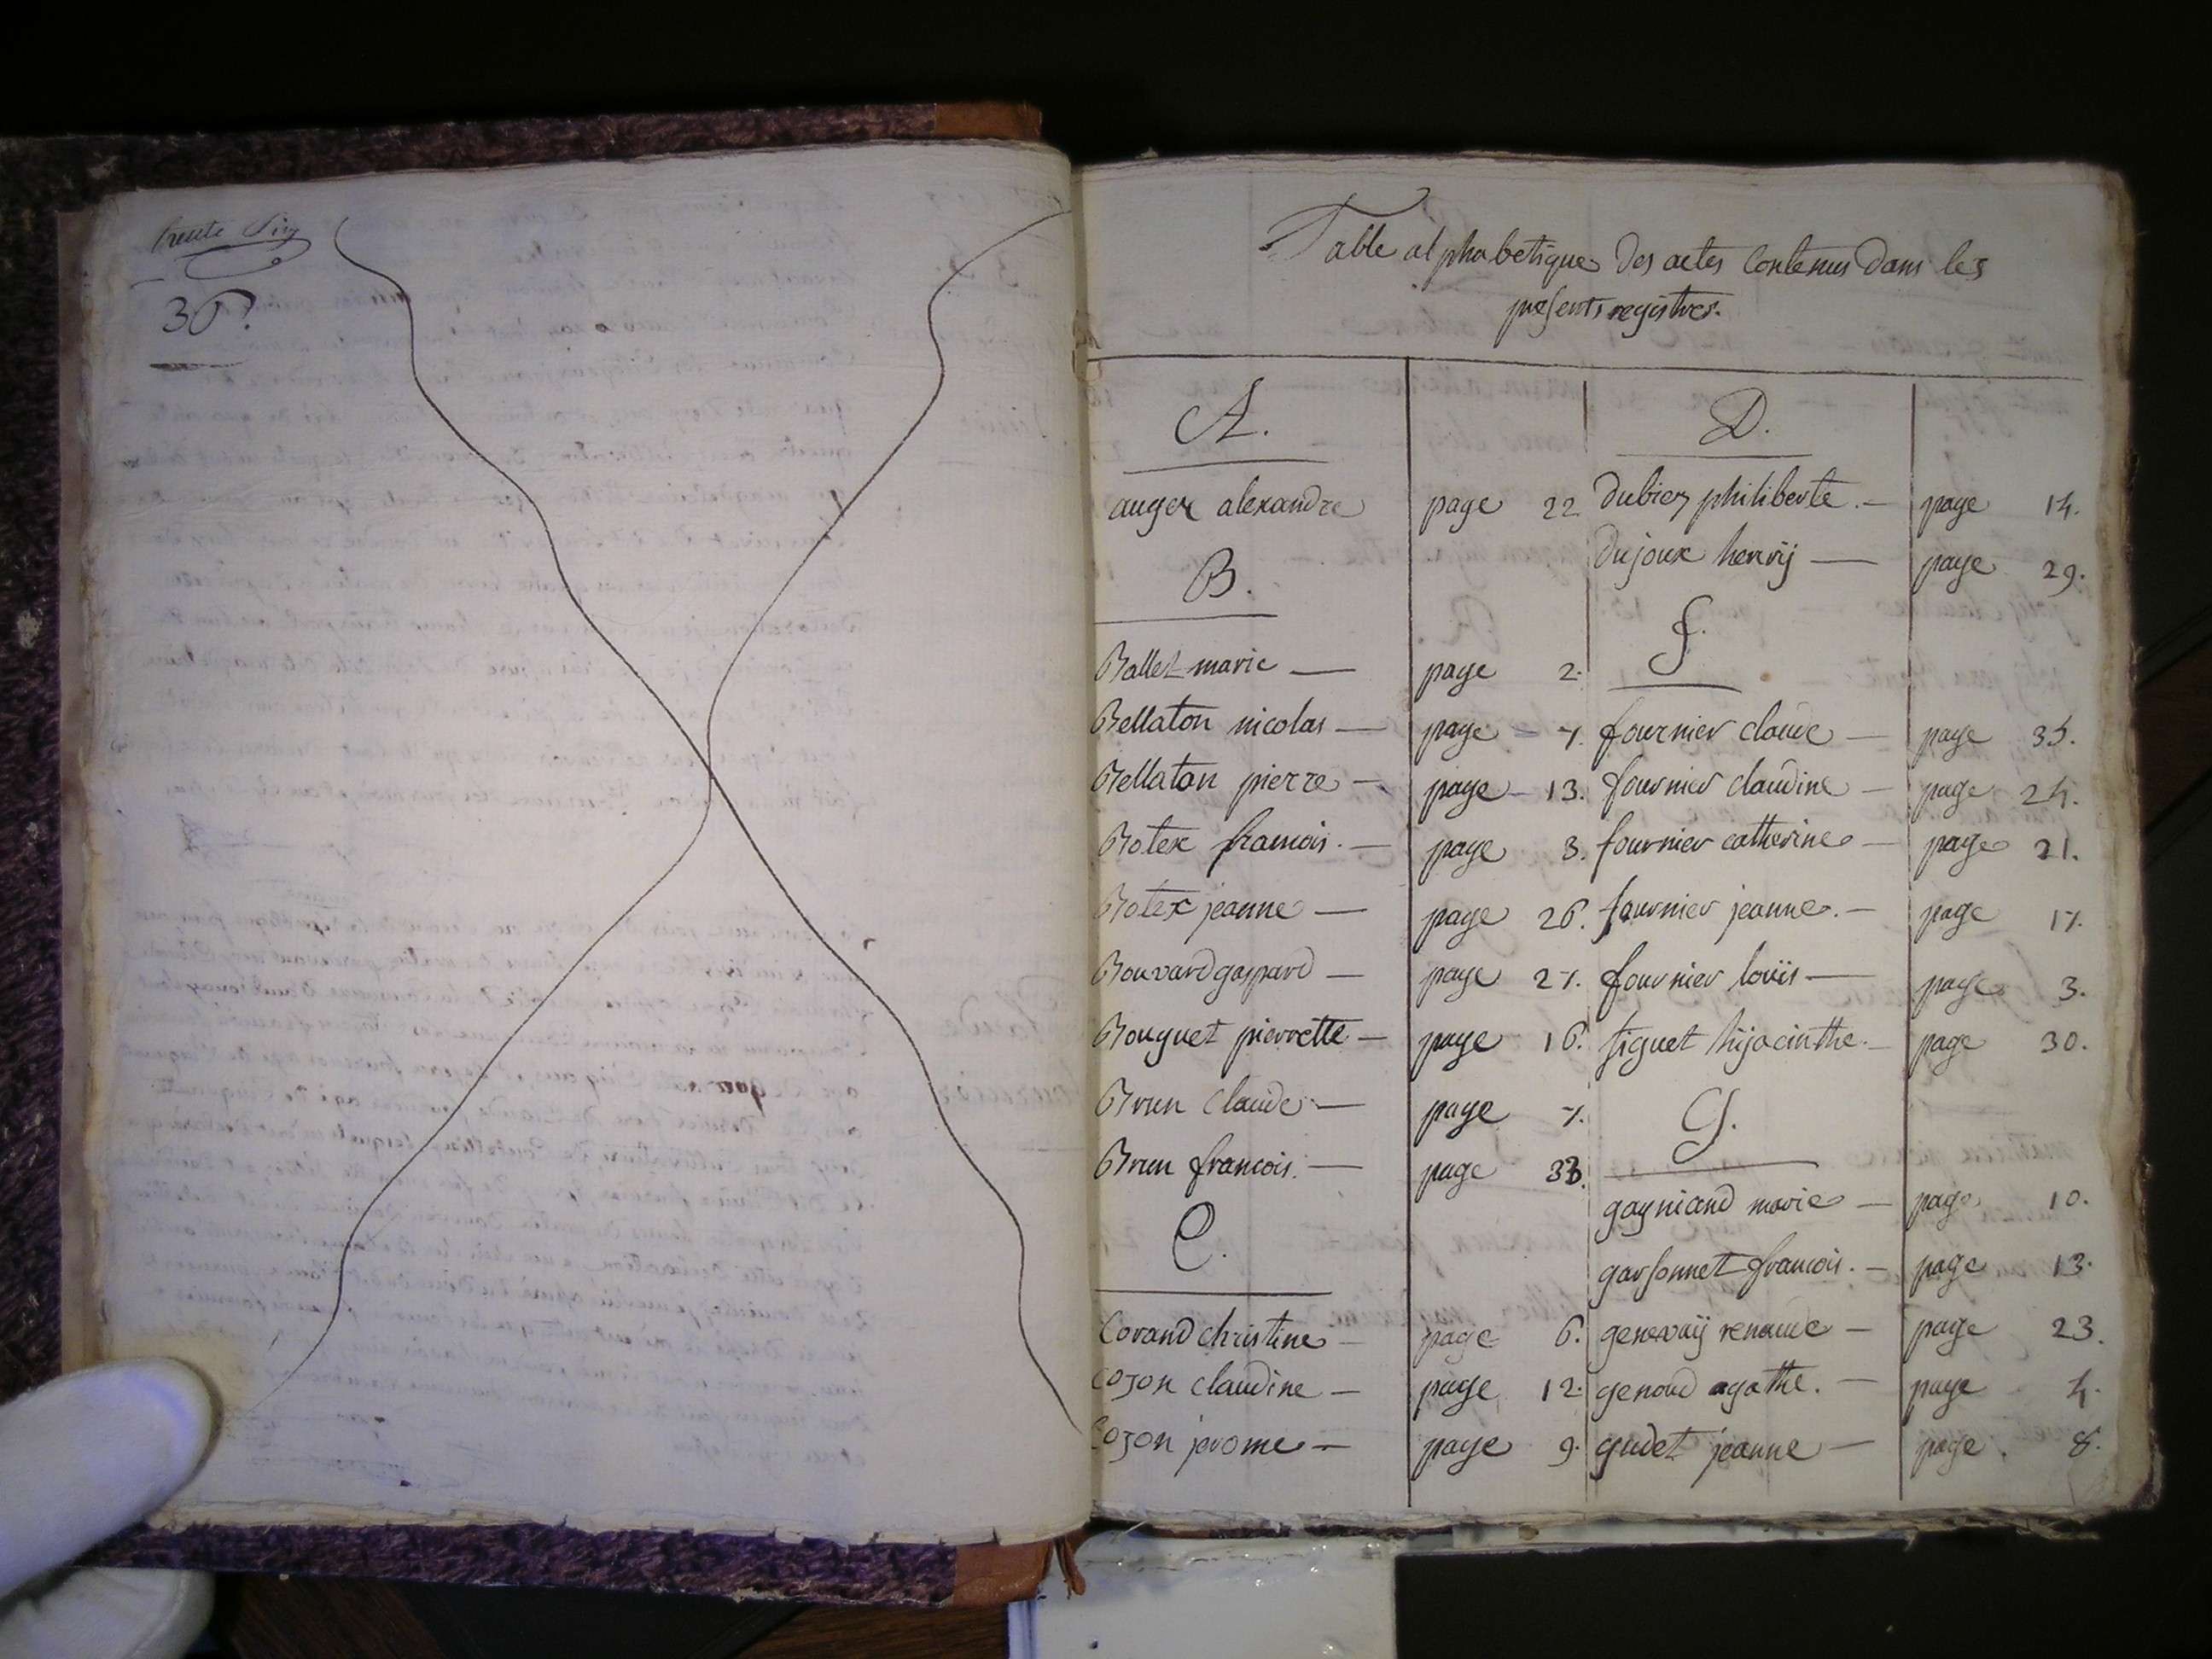 trente Six
36.
Table alphabetique des actes Contenus dans les
presents registres.
A.
auger alexandre page 22
B.
Ballet marie — page 2.
Bellaton nicolas — page 7.
Bellaton pierre — page 13.
Botex francois. — page 3.
Botex jeanne — page 26.
Bouvard gaspard — page 27.
Bouguet pierrette — page 16.
Brun Claude — page 7.
Brun francois. — page 33.
C.
Corand christine — page 6.
Cozon claudine — page 12.
Cozon jerome — page 9.
D.
dubiez philiberte. — page 14.
dujoux henrij — page 29.
f.
fournier claude — page 35.
fournier claudine — page 24.
fournier catherine — page 21.
fournier jeanne. — page 17.
fournier louïs — page 3.
figuet hijacinthe. — page 30.
G.
gagniand marie — page 10.
garsonnet francois. — page 13.
genevaij renaude — page 23.
genoud agathe. — page 4.
gudet jeanne — page 8.